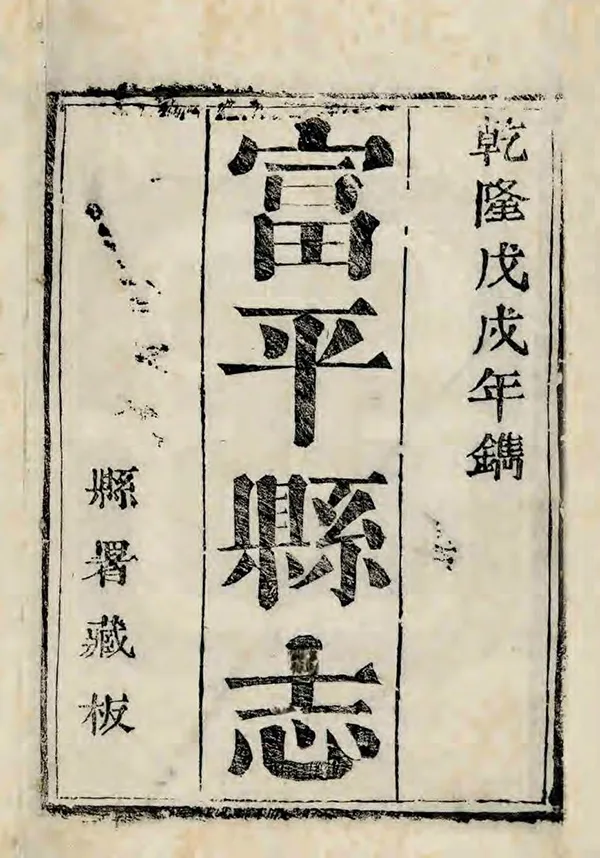 乾隆戊戌年鐫
富平縣志
縣署藏板